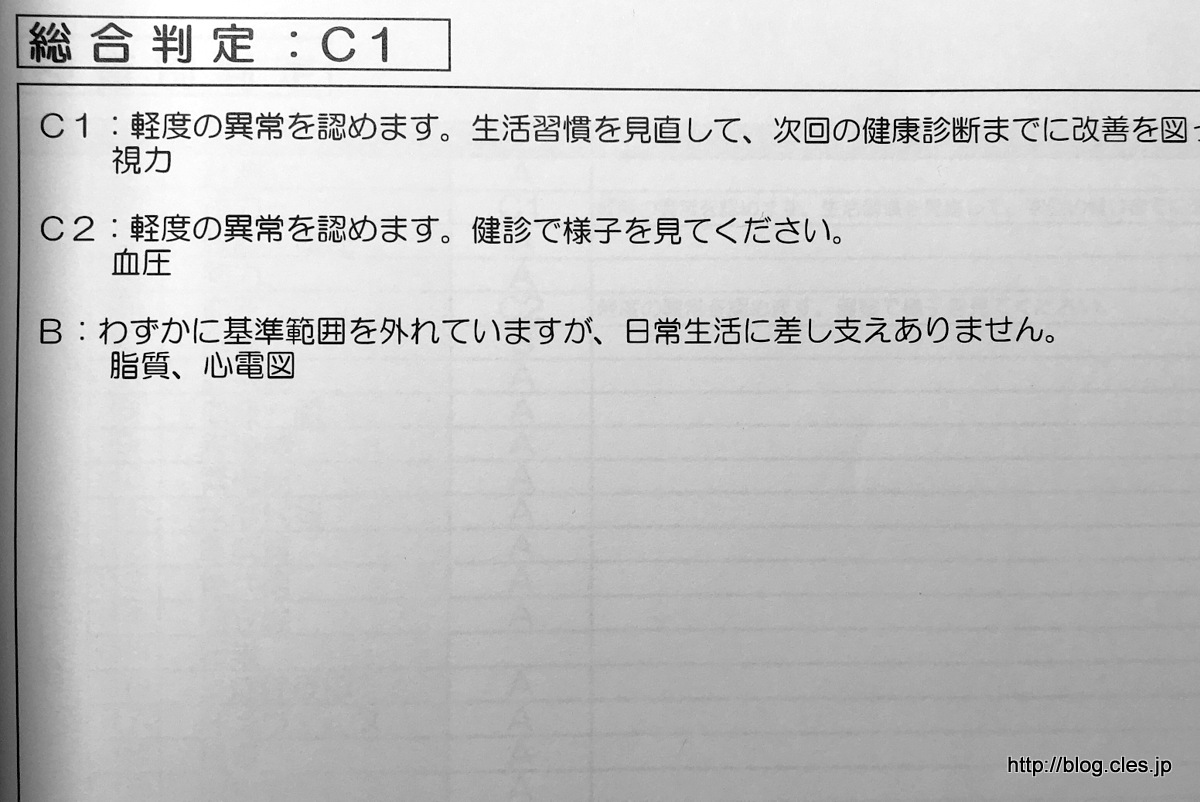 総合判定：C1
C1：軽度の異常を認めます。生活習慣を見直して、次回の健康診断までに改善を図っ
視力
C2：軽度の異常を認めます。健診で様子を見てください。
血圧
B：わずかに基準範囲を外れていますが、日常生活に差し支えありません。
脂質、心電図
http://blog.cles.jp